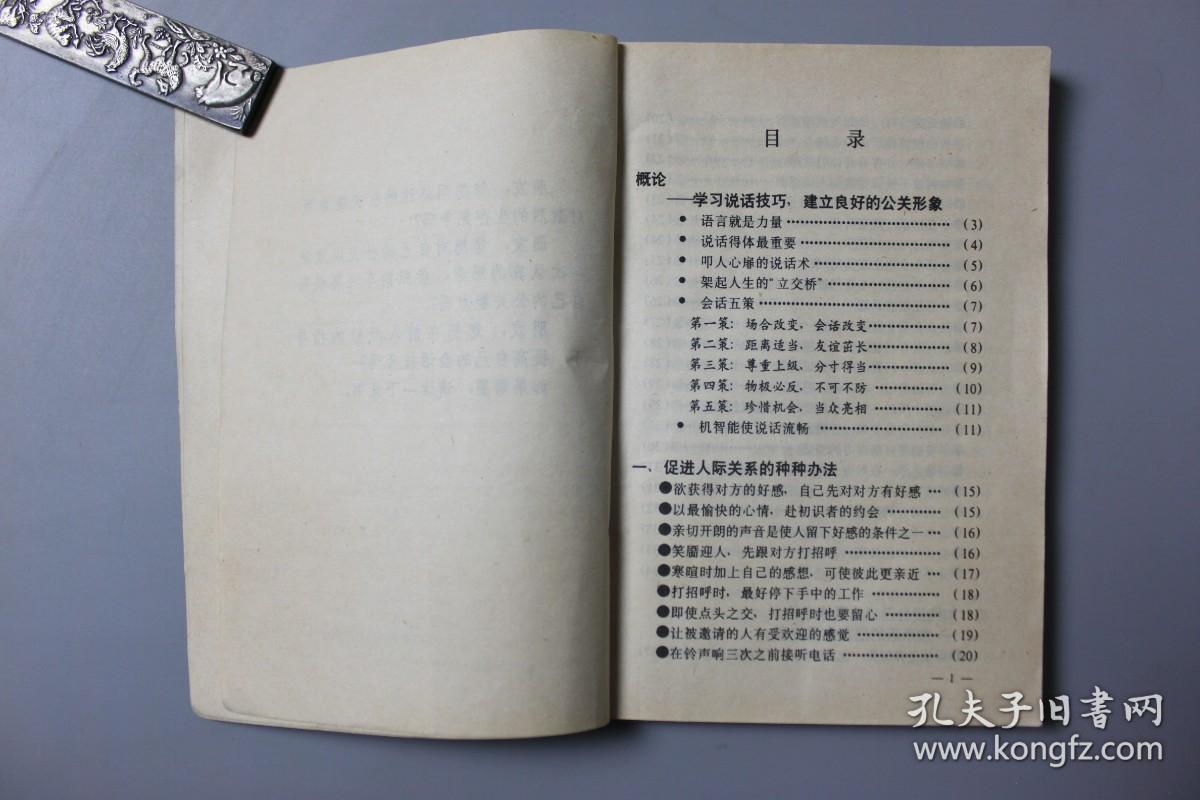 目 录
概论
——学习说话技巧，建立良好的公关形象
• 语言就是力量 …………………………… (3)
• 说话得体最重要 ………………………… (4)
• 叩人心扉的说话术 ……………………… (5)
• 架起人生的“立交桥” …………………… (6)
• 会话五策 ………………………………… (7)
第一策：场合改变，会话改变 …………… (7)
第二策：距离适当，友谊茁长 …………… (8)
第三策：尊重上级，分寸得当 …………… (9)
第四策：物极必反，不可不防 …………… (10)
第五策：珍惜机会，当众亮相 …………… (11)
• 机智能使说话流畅 ……………………… (11)
一、促进人际关系的种种办法
●欲获得对方的好感，自己先对对方有好感 … (15)
●以最愉快的心情，赴初识者的约会 ……… (15)
●亲切开朗的声音是使人留下好感的条件之一 … (16)
●笑靥迎人，先跟对方打招呼 ……………… (16)
●寒暄时加上自己的感想，可使彼此更亲近 … (17)
●打招呼时，最好停下手中的工作 ………… (18)
●即使点头之交，打招呼时也要留心 ……… (18)
●让被邀请的人有受欢迎的感觉 …………… (19)
●在铃声响三次之前接听电话 ……………… (20)
— 1 —
孔夫子旧书网
www.kongfz.com